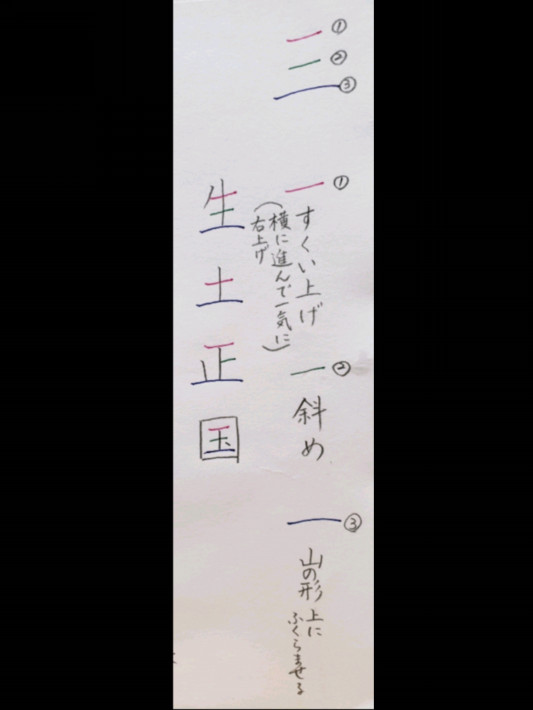 三
①
②
③
一 ①
すくい上げ
(横に進んで一気に
右上げ)
一 ②
斜め
一 ③
山の形 上に
ふくらませる
生
土
正
国